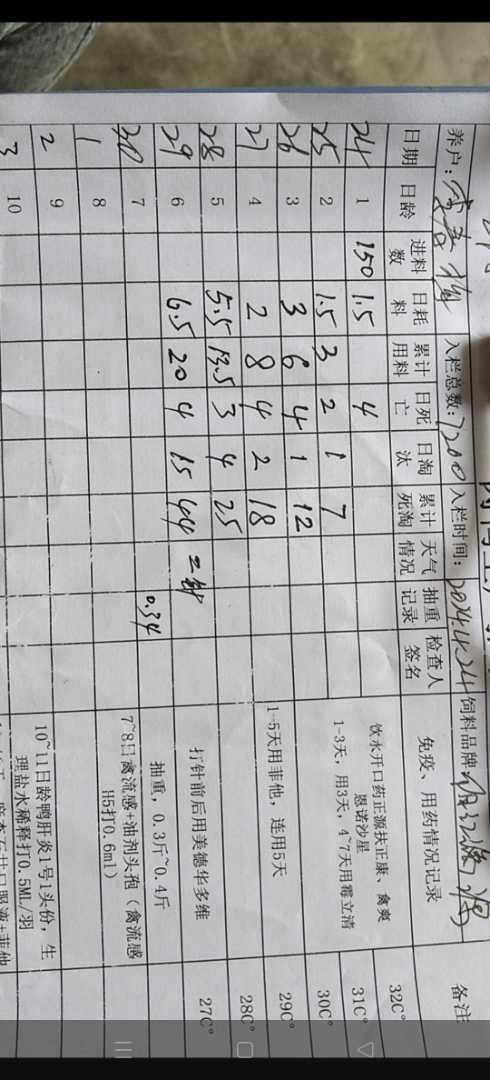 养户: 入栏总数: 7200 入栏时间: 2024.4.24 饲料品牌
日期 日龄 进料数 日耗料 累计用料 日死亡 日淘汰 累计死淘 天气情况 抽重记录 检查人签名 免疫、用药情况记录 备注
24 1 150 1.5 4 饮水开口药正源扶正康，禽爽 32C°
恩诺沙星 31C°
25 2 1.5 3 2 1 7 1-3天，用3天，4~7天用霉立清 30C°
26 3 3 6 4 1 12 29C°
27 4 2 8 4 2 18 1-5天用菲他，连用5天 28C°
28 5 5.5 13.5 3 4 25 打针前后用美德华多维 27C°
29 6 6.5 20 4 15 44 抽重，0.3斤~0.4斤
30 7 0.34 7~8日禽流感+油剂头孢（禽流感
H5打0.6ml）
1 8
2 9 10~11日龄鸭肝炎1号1头份，生
3 10 理盐水稀释打0.5ML/羽